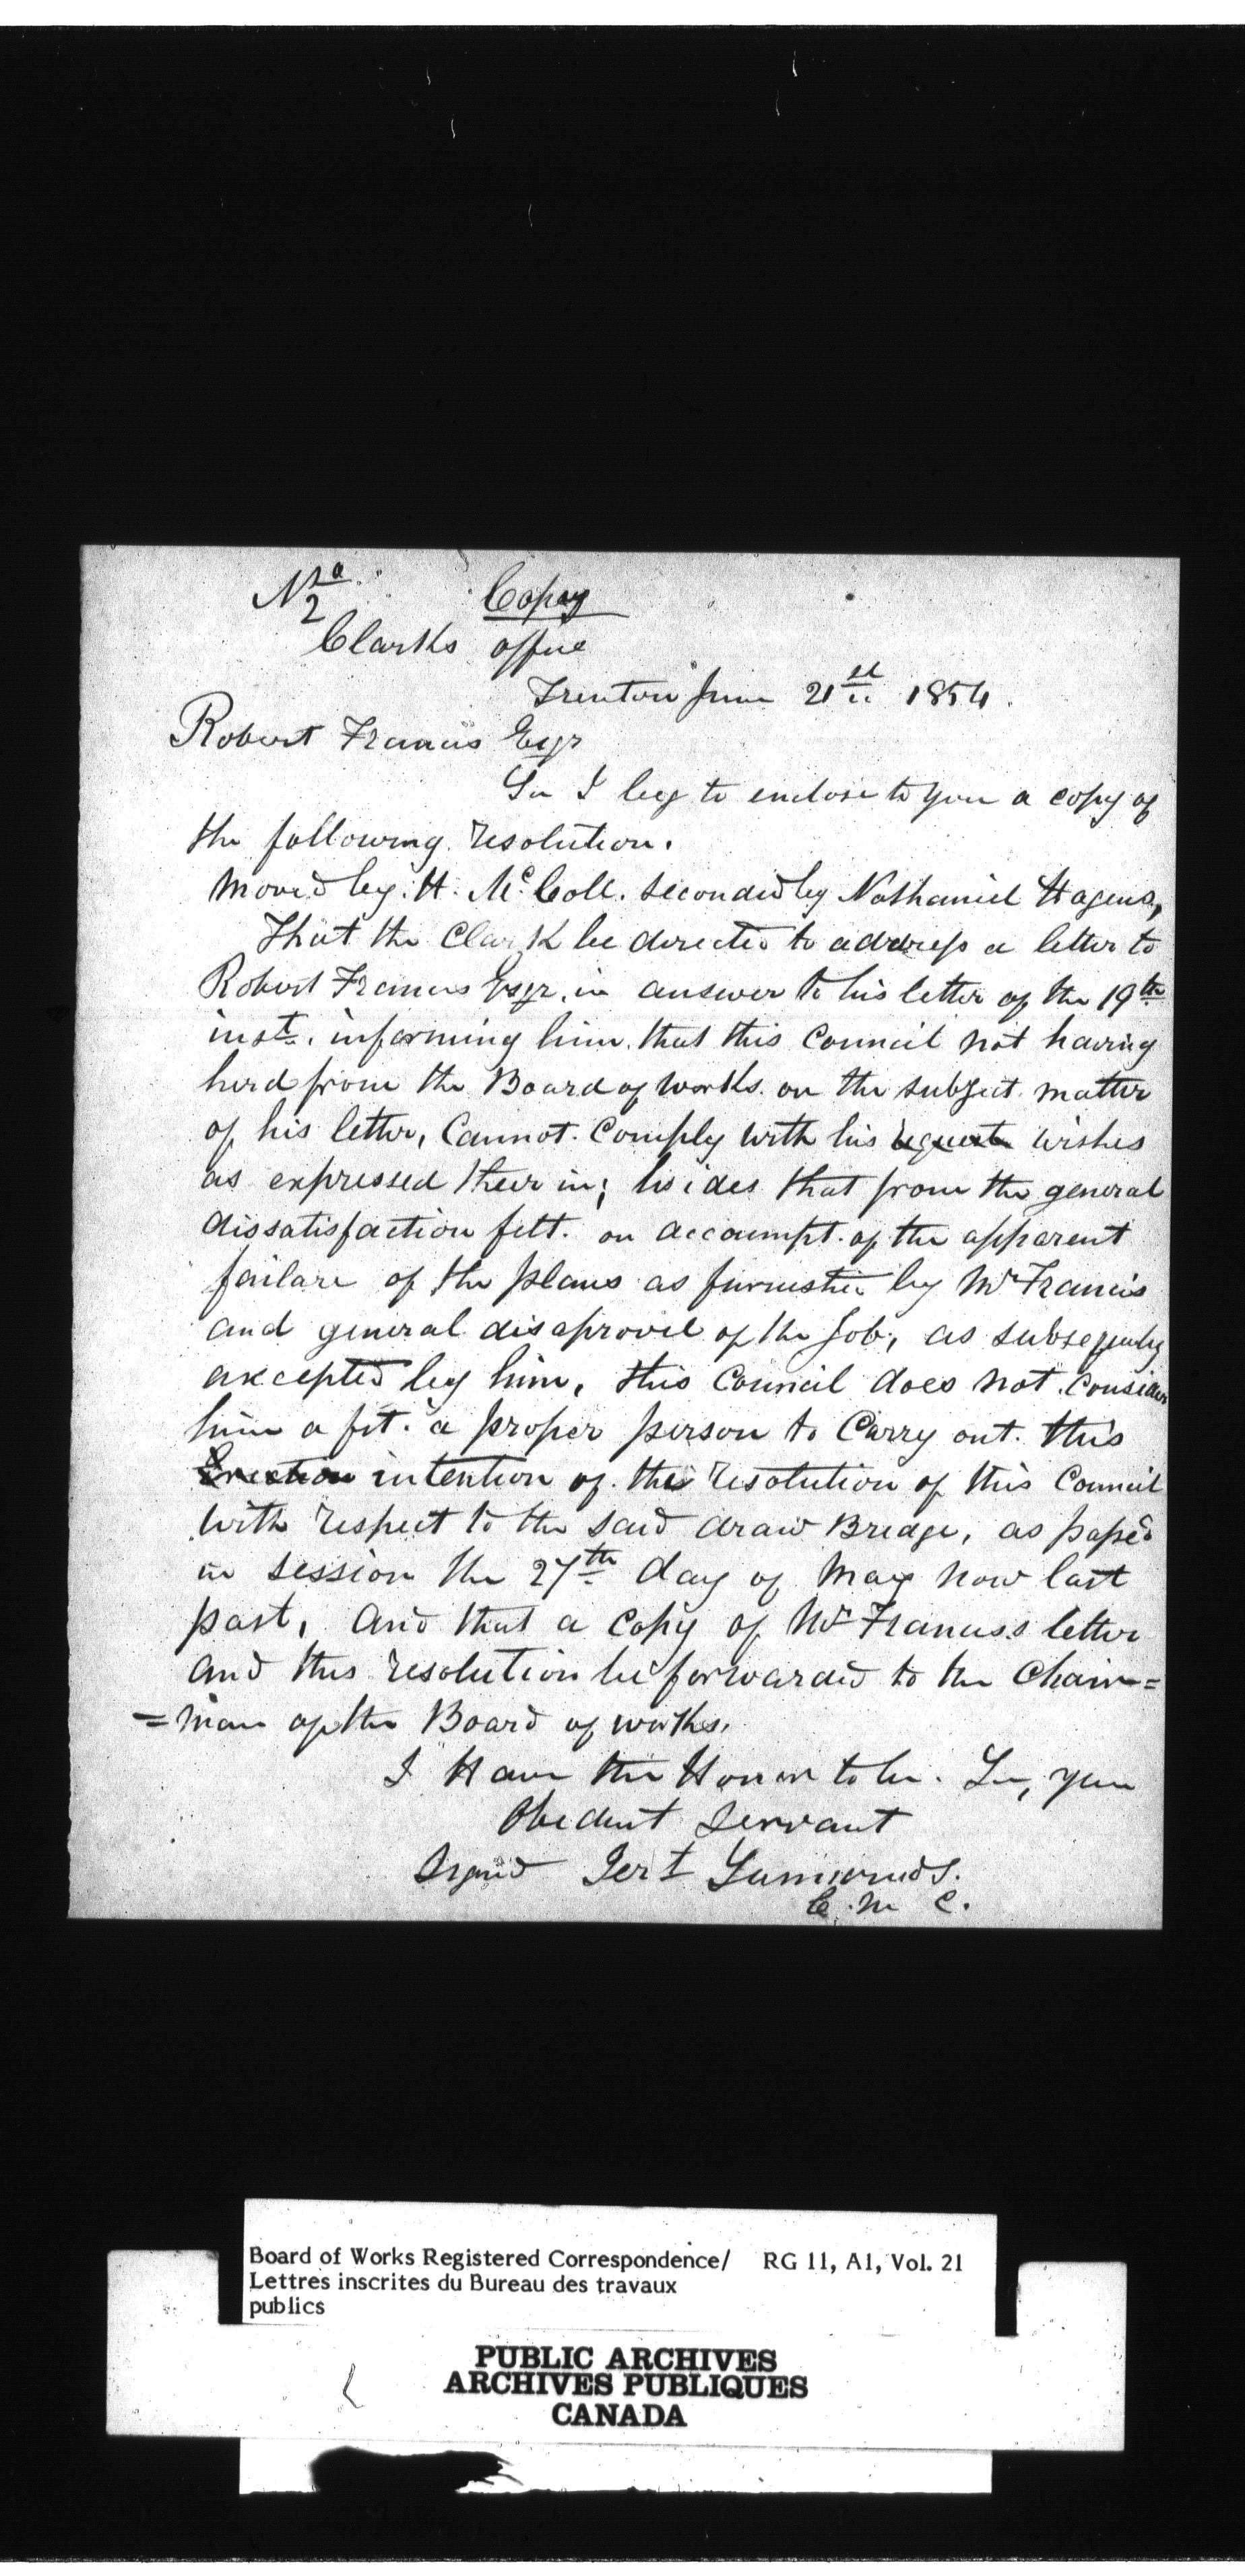 No 2 Copy
Clarks office
Trenton June 21st 1854.
Robert Francis Esqr
Sir I beg to enclose to you a copy of
the following resolution.
Moved by H. McColl. seconded by Nathaniel Hagens,
That the Clark be directed to address a letter to
Robert Francis Esqr. in answer to his letter of the 19th
inst. informing him that this Council not having
herd from the Board of works on the subject matter
of his letter, Cannot Comply with his request wishes
as expressed their in; besides that from the general
dissatisfaction felt. on accoumpt of the apparent
failare of the plans as furnished by Mr Francis
and general disaprovel of the Job, as subsequntly
axcepted by him, this Council does not Consider
him a fit a proper person to Carry out this
Erection intention of the resolution of this Council
with respect to the said draw Bredge, as passed
in session the 27th day of May now last
past, and that a Copy of Mr Franciss letter
and this resolution be forwarded to the Chair=
=man of the Board of works.
I Have the Honor to be. Sir, your
Obedient Servant
Signed
C. M C.
Board of Works Registered Correspondence/ RG 11, A1, Vol. 21
Lettres inscrites du Bureau des travaux
publics
PUBLIC ARCHIVES
ARCHIVES PUBLIQUES
CANADA